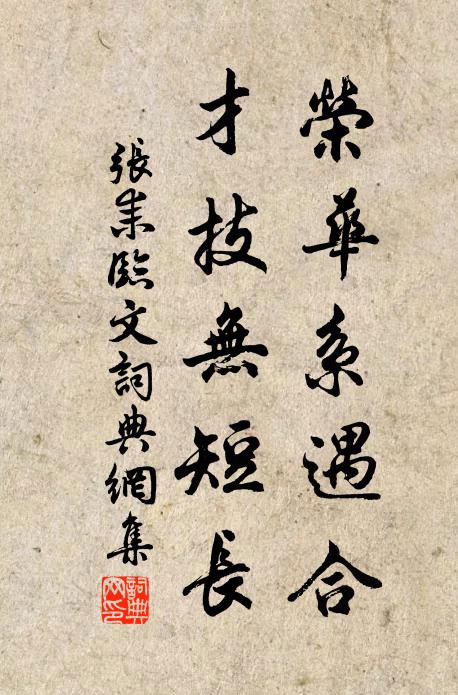 榮華系遇合
才技無短長
張耒臨文詞典網集
詞典
文印